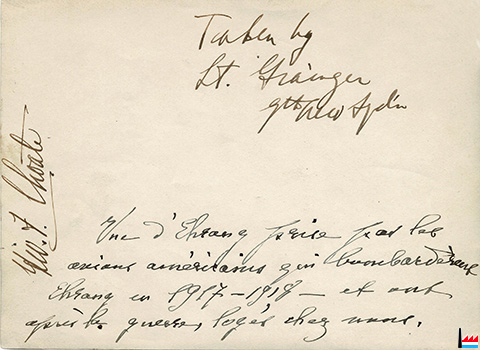 Taken by
Lt. Grainger
9th Aero Sqd'n
Geo. F. Choate
Vue d'Ehrang prise par les
avions américains qui bombardèrent
Ehrang en 1917-1918 - et ont
après la guerre, logés chez nous.